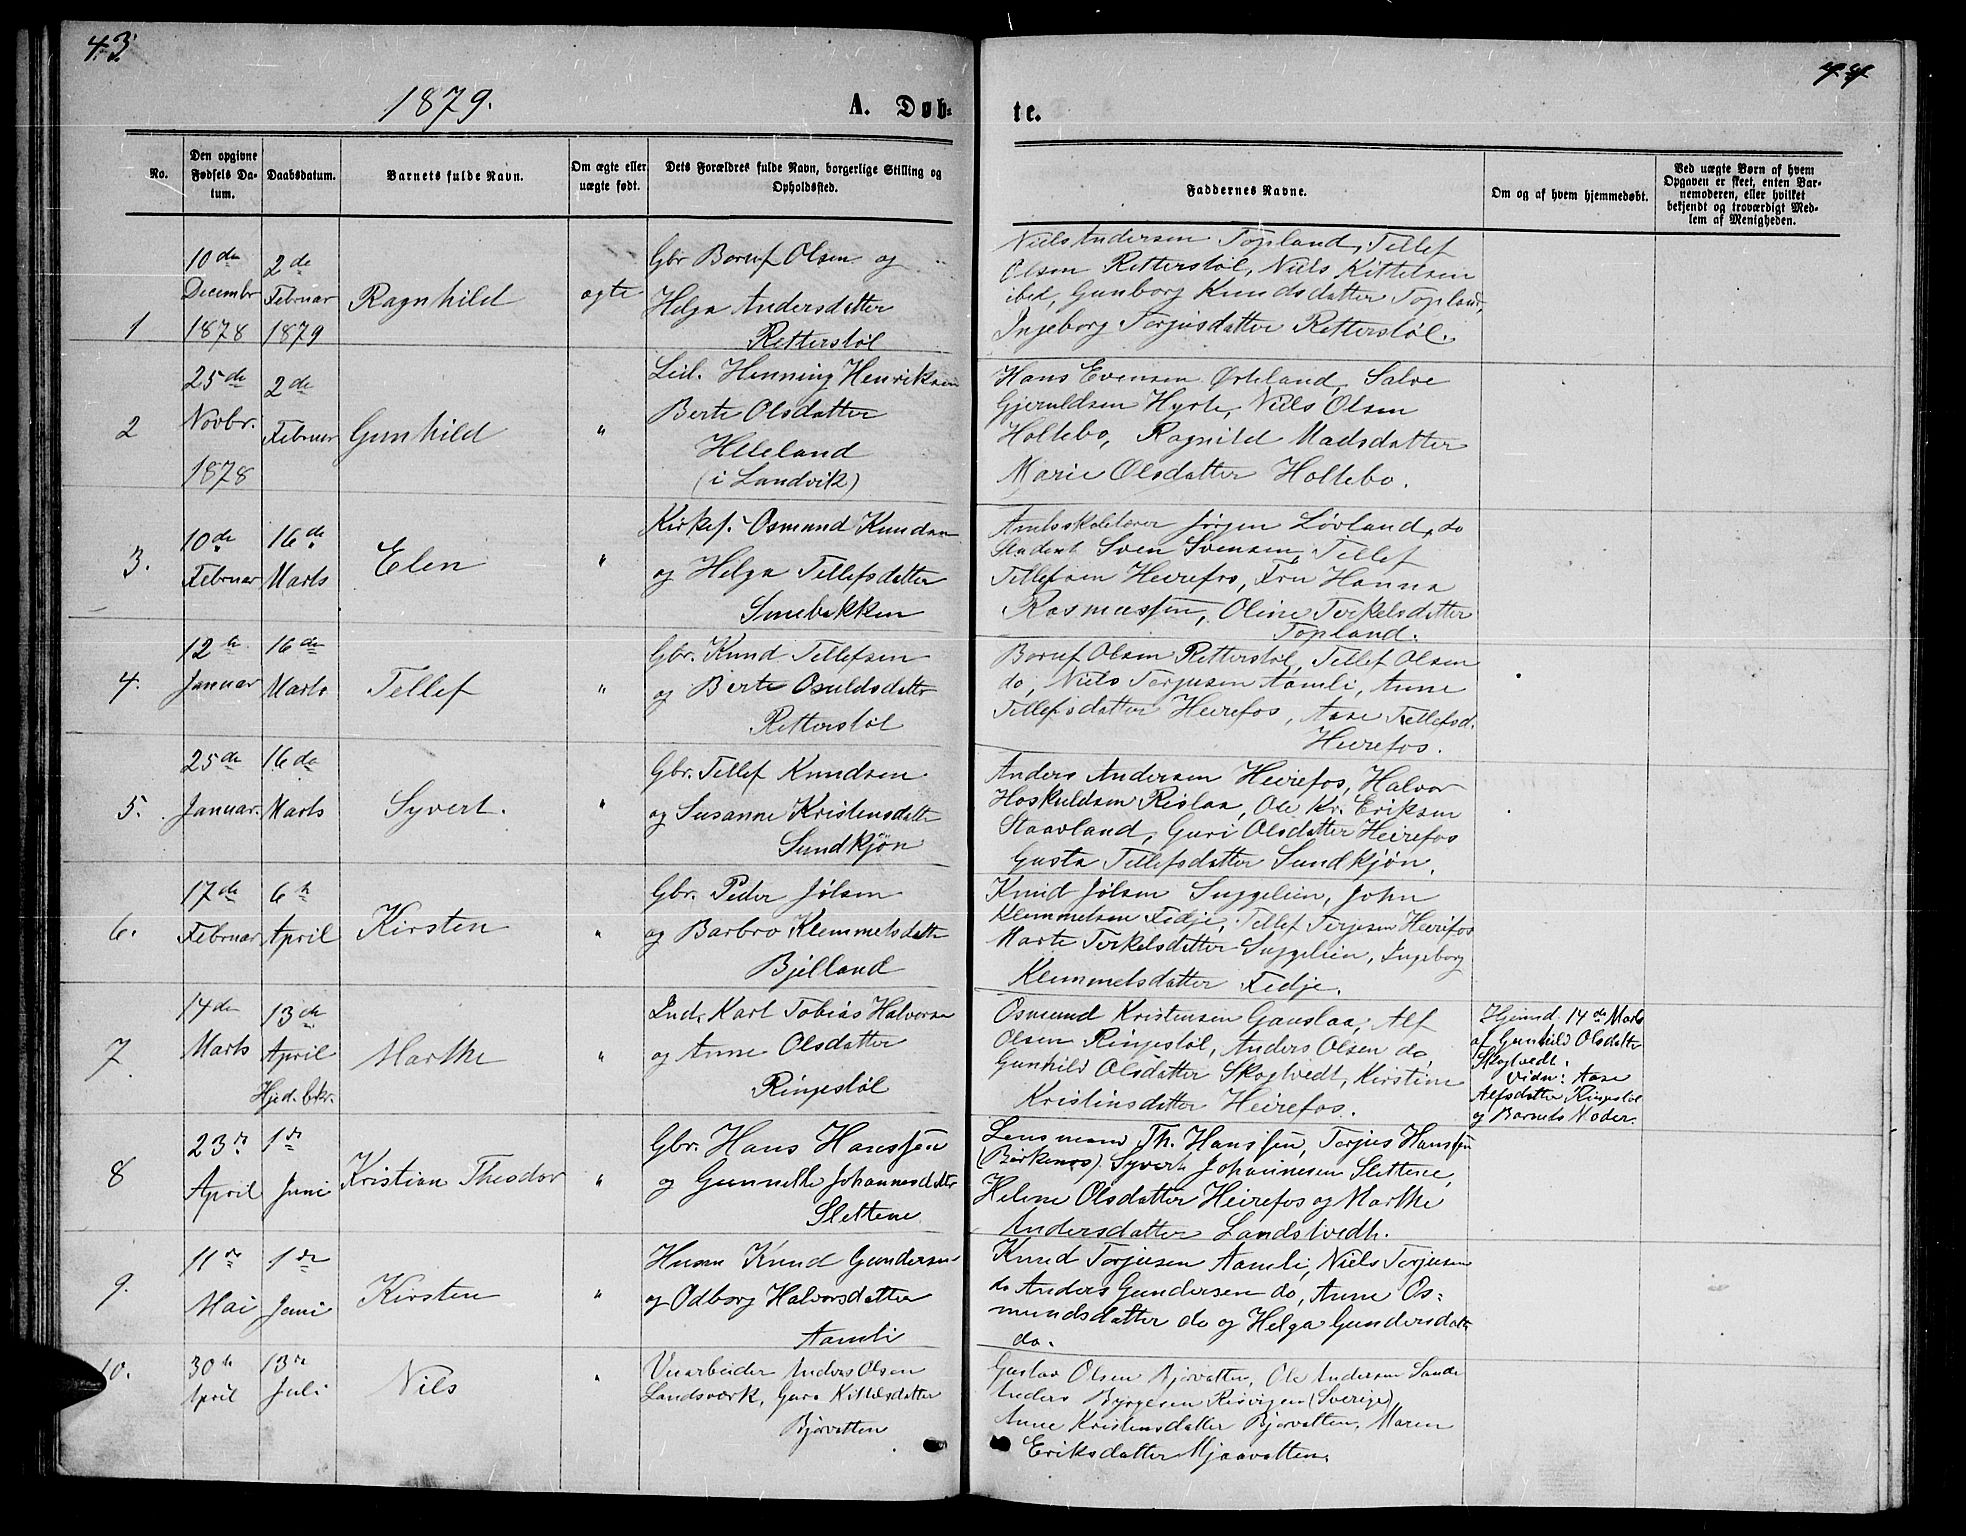 43.
44
1879.
A. Døb-
te.
No.
Den opgivne Fødsels Da-tum.
Daabsdatum.
Barnets fulde Navn.
Om ægte eller uægte født.
Dets Forældres fulde Navn, borgerlige Stilling og Opholdssted.
Faddernes Navne.
Om og af hvem hjemmedøbt.
Ved uægte Børn af hvem Opgaven er skeet, enten Bar-nemoderen, eller hvilket bekjendt og troværdigt Med-lem af Menigheden.
1
10de Decembr 1878
2de Februar 1879
Ragnhild
ægte
Gbr Boruf Olsen og
Helga Andersdatter
Retterstøl
Niels Andersen Topland, Tellef
Olsen Retterstøl, Niels Kittelsen
ibd, Gunborg Knudsdatter Topland,
Ingeborg Torjusdatter Retterstøl.
2
25de Novbr. 1878
2de Februar
Gunhild
"
Leil. Henning Henriksen
Berte Olsdatter
Heleland
(i Landvik)
Hans Evensen Ørteland, Salve
Gjeruldsen Hyrte, Niels Olsen
Holtebo, Ragnild Madsdatter
Marie Olsdatter Holtebo.
3.
10de Februar
16de Marts
Elen
"
Kirkes. Osmund Knudsen
og Helga Tellefsdatter
Smebakken
Amtsskolelærer Jørgen Løvland, do
Student Sven Svensen, Tellef
Tellefsen Heirefos, Fru Hanna
Rasmussen, Oline Terkelsdatter
Topland.
4.
12te Januar
16de Marts
Tellef
"
Gbr. Knud Tellefsen
og Berte Osuldsdatter
Retterstøl
Boruf Olsen Retterstøl, Tellef Olsen
do, Niels Torjusen Aamli, Anne
Tellefsdatter Heirefos, Aase Tellefsd.
Heirefos.
5.
25de Januar.
16de Marts
Syvert.
"
Gbr. Tellef Knudsen
og Susanne Kristensdatter
Sundkjøn
Anders Andersen Heirefos, Halvor
Hoskuldsen Rislaa, Ole Kr. Eriksen
Staavland, Guri Olsdatter Heirefos
Gusta Tellefsdatter Sundkjøn.
6.
17de Februar
6te April
Kirsten
"
Gbr. Peder Jølsen
og Barbro Klemmetsdatter
Bjelland
Knud Jølsen Suggelien, John
Klemmetsen Fidje, Tellef Terjesen Heirefos
Marte Terkelsdatter Suggelien, Ingeborg
Klemmetsdatter Fidje.
7
14de Marts
13de April
Hjed. bekr.
Marthe
"
Ind. Karl Tobias Halvorsen
og Anne Olsdatter
Ringestøl
Osmund Kristensen Gauslaa, Alf
Olsen Ringestøl, Anders Olsen do,
Gunhild Olsdatter Skogtvedt, Kirstine
Kristinsdatter Heirefos.
Hjemd. 14de Marts
af Gunhild Olsdatter
Skogtvedt.
Vidn: Aase
Alfsdatter Ringestøl
og Barnets Moder.
8
23de April
1de Juni
Kristian Theodor
"
Gbr. Hans Hanssen
og Gunnelle Johannesdatter
Slettene
Lensmand Th. Hanssen, Torjus Hanssen
(Birkenes) Syvert Johannesen Slettene,
Helene Olsdatter Heirefos og Marthe
Andersdatter Landstvedt.
9.
11de Mai
1de Juni
Kirsten
"
Husm Knud Gundersen
og Odborg Halvorsdatter
Aamli
Knud Torjusen Aamli, Niels Torjusen
do Anders Gundersen do, Anne Os-
mundsdatter do og Helga Gundersdatter
do.
10.
30te April
13de Juli
Nils
"
Anders Olsen
Landsverk, Guro Kittelsdatter
Bjorvatten
Gustav Olsen Bjorvatten, Ole Andersen Lande
Anders Byrgesen (Sverige),
Anne Kristensdatter Bjorvatten, Maren
Eriksdatter Mjaavatten.